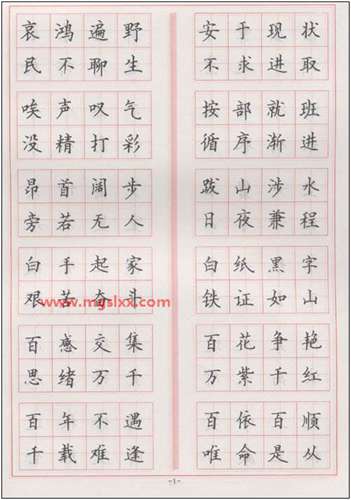 哀鸿遍野
民不聊生
唉声叹气
没精打彩
昂首阔步
旁若无人
白手起家
艰苦奋斗
www.mgslxx.com
百感交集
思绪万千
百年不遇
千载难逢
安于现状
不求进取
按部就班
循序渐进
跋山涉水
日夜兼程
白纸黑字
铁证如山
百花争艳
万紫千红
百依百顺
唯命是从
-1-